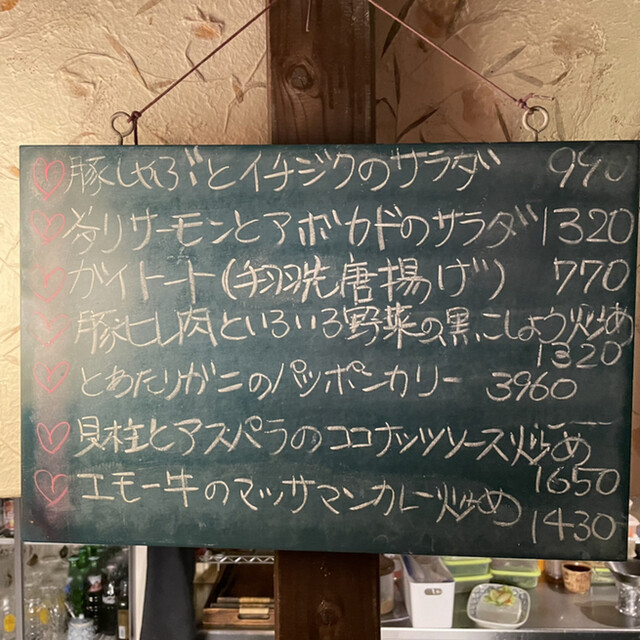 豚しゃぶとイチジクのサラダ 990
炙りサーモンとアボカドのサラダ 1320
ガイトート(手羽先唐揚げ) 770
豚ヒレ肉といろいろ野菜の黒こしょう炒め
1320
とあたりガニのパッポンカリー 3960
貝柱とアスパラのココナッツソース炒め
1650
エモー牛のマッサマンカレー炒め
1430